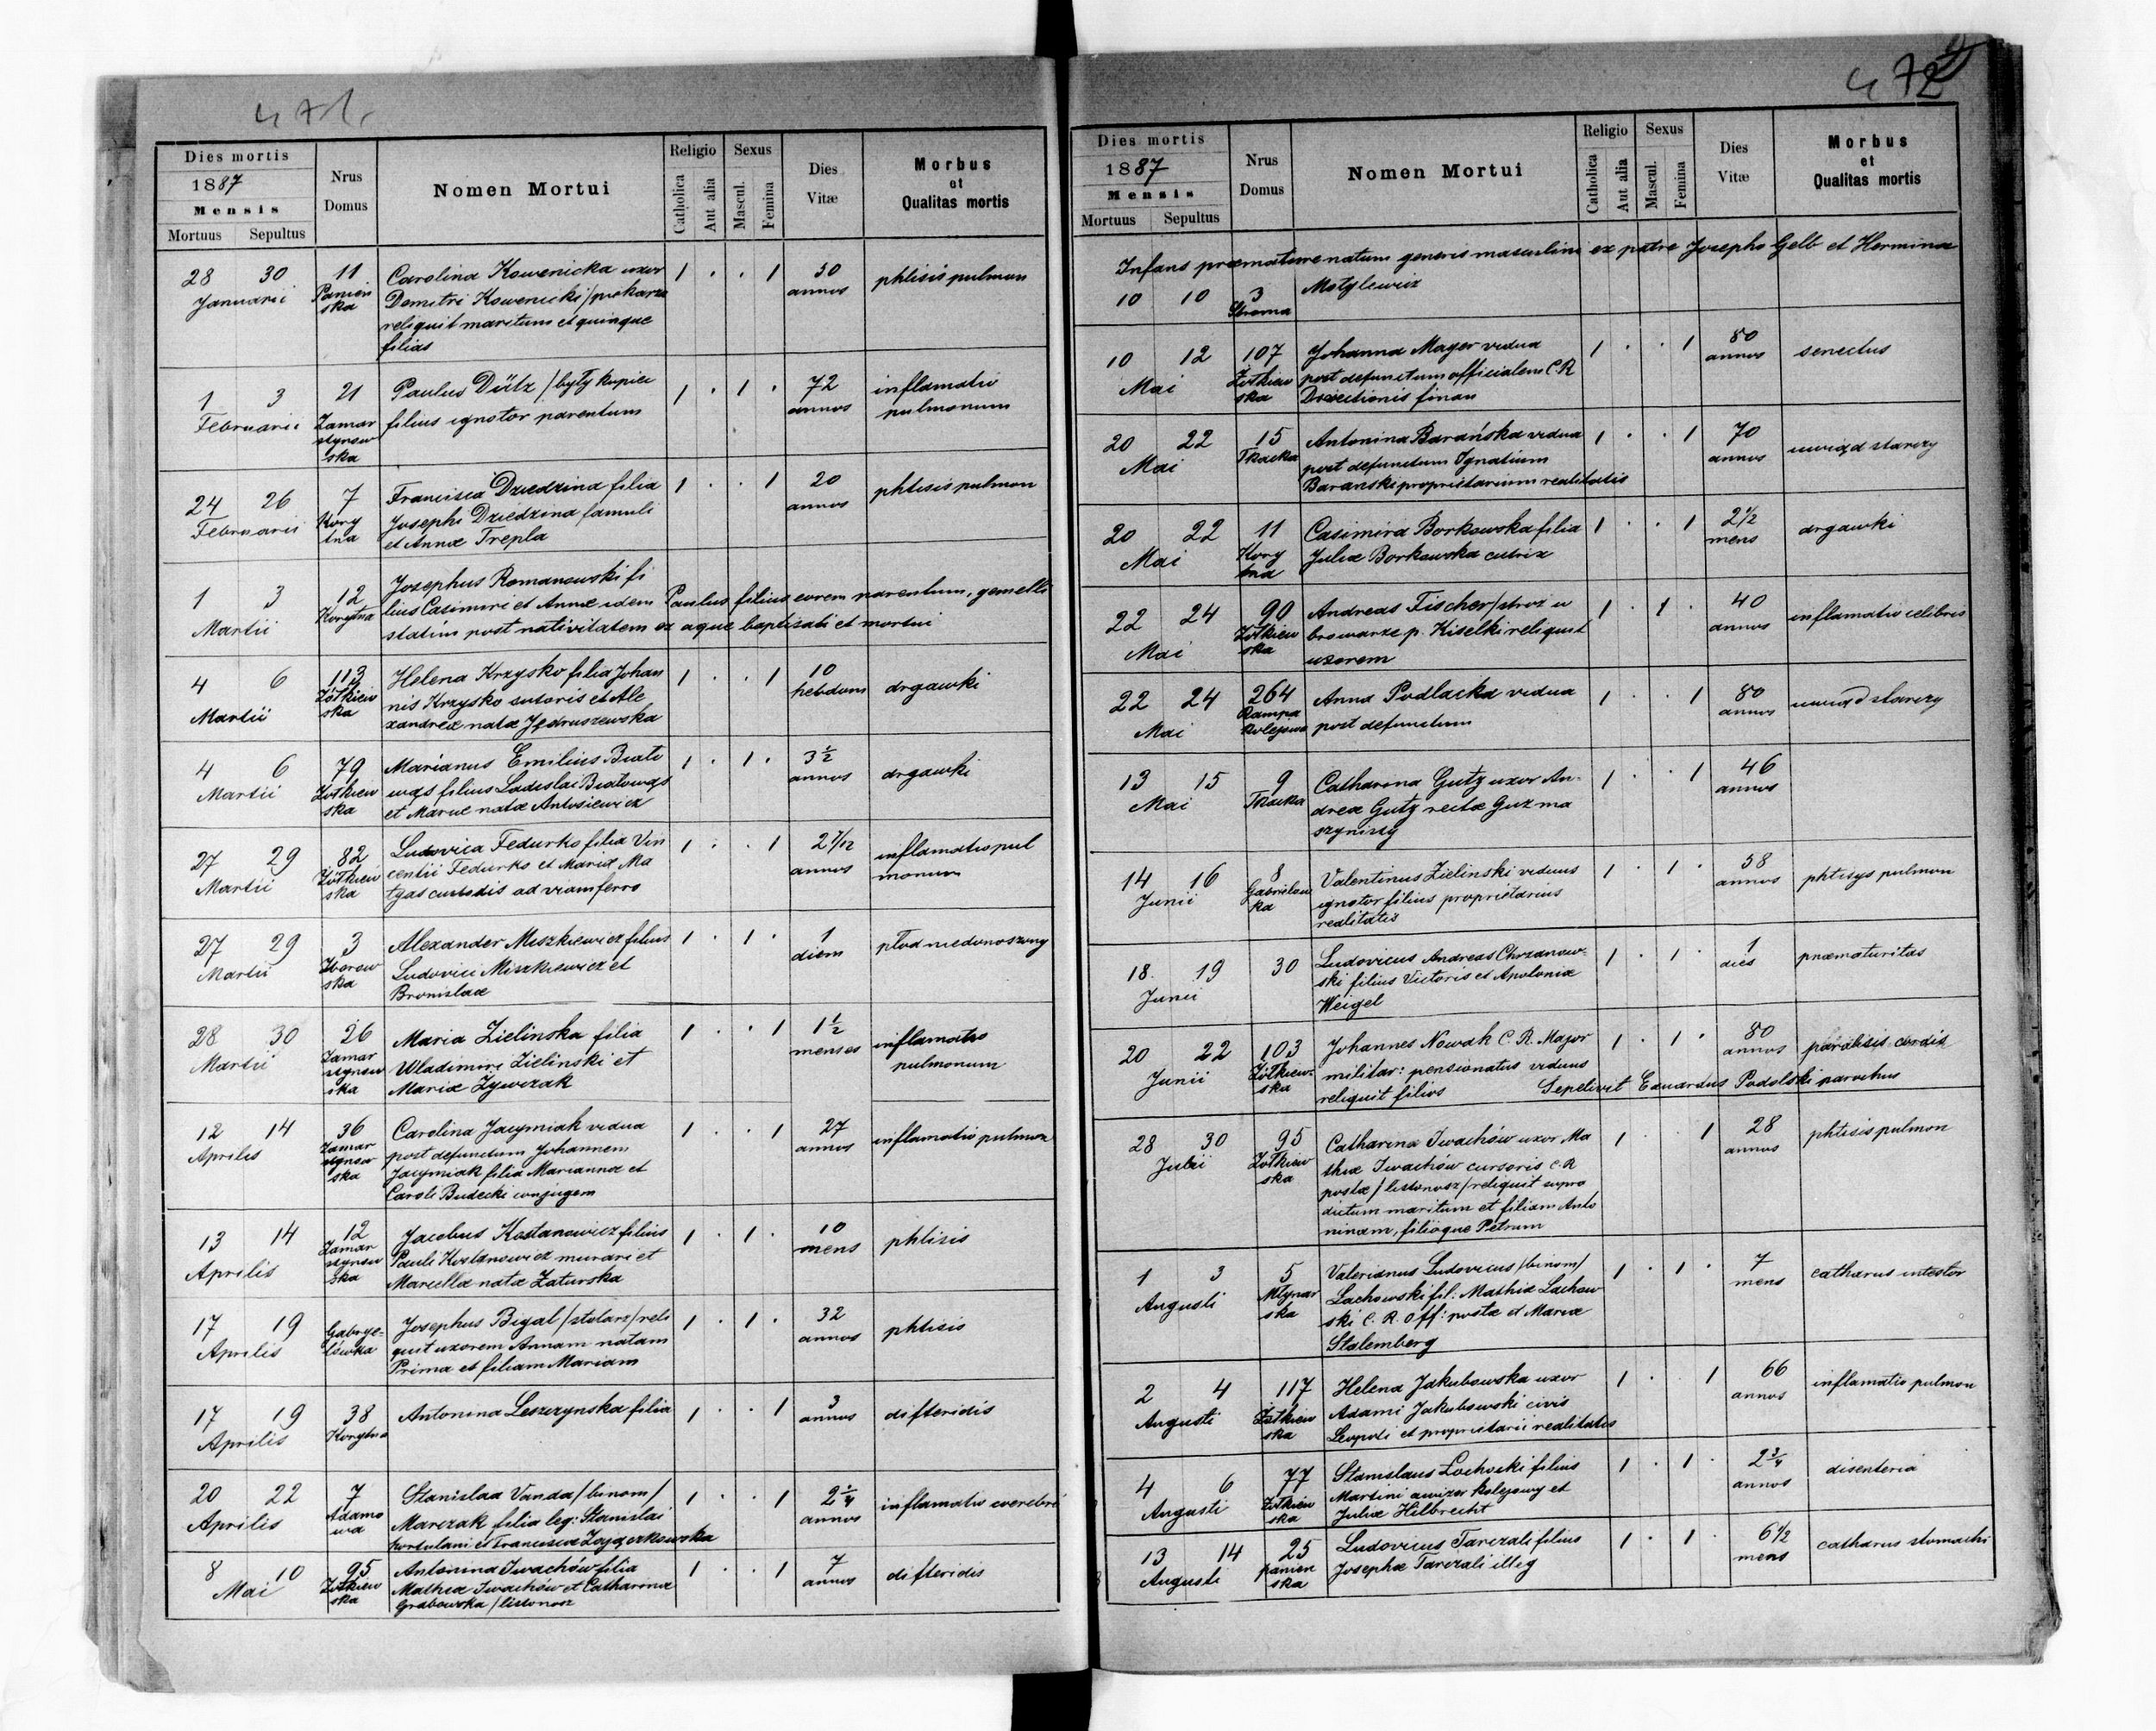 471.
Dies mortis
1887
Mensis
Mortuus Sepultus
Nrus Domus
Nomen Mortui
Religio
Catholica Aut alia
Sexus
Mascul. Femina
Dies Vitæ
Morbus et Qualitas mortis
28 30 11 Carolina Kowenicka uxor 1 . . 1 50 phtisis pulmon
Januarii Panień Demetri Kowenicki / piekarza annos
ska reliquit maritum et quinque
filias
1 3 21 Paulus Dütz / były kupiec 1 . 1 . 72 inflamatio
Februarii Zamar filius ignotor parentum annos pulmonum
stynow
ska
24 26 7 Francisca Dziedzina filia 1 . . 1 20 phtisis pulmon
Februarii Kory Josephi Dziedzina famuli annos
tna et Annæ Trepla
1 3 12 Josephus Romanowski fi
Martii Korytna lius Casimiri et Annæ idem Paulus filius eorem parentum, gemelli
statim post nativitatem ex aque baptisati et mortui
4 6 113 Helena Krzysko filia Johan 1 . . 1 10 drgawki
Martii Żółkiew nis Krzysko sutoris et Ale hebdom
ska xandræ natæ Jędruszewska
4 6 79 Marianus Emilius Biało 1 . 1 . 3 1/2 drgawki
Martii Żółkiew wąs filius Ladislai Białowąs annos
ska et Mariæ natæ Antosiewicz
27 29 82 Ludovica Fedurko filia Vin 1 . . 1 2 7/12 inflamatio pul
Martii Żółkiew centii Fedurko et Mariæ Ma annos monum
ska tyas custodis ad viam ferro
27 29 3 Alexander Miszkiewicz filius 1 . 1 . 1 płod niedonoszony
Martii Zborow Ludovici Miszkiewicz et diem
ska Bronislaæ
28 30 26 Maria Zielinska filia 1 . . 1 1 1/2 inflamatio
Martii Zamar Wladimiri Zielinski et menses pulmonum
stynow Mariæ Żywczak
ska
12 14 36 Carolina Jacymiak vidua 1 . . 1 27 inflamatio pulmon
Aprilis Zamar post defunctum Johannem annos
stynow Jacymiak filia Mariannæ et
ska Caroli Budecki conjugem
13 14 12 Jacobus Kostanowicz filius 1 . 1 . 10 phtisis
Aprilis Zamar Pauli Kostanowicz murari et mens
stynow Marcellæ natæ Zaturska
ska
17 19 Gabrye- Josephus Bigal / stolarz / reli 1 . 1 . 32 phtisis
Aprilis lówka quit uxorem Annam natam annos
Prima et filiam Mariam
17 19 38 Antonina Leszczynska filia 1 . . 1 3 difteridis
Aprilis Korytna annos
20 22 7 Stanislaa Vanda / binom / 1 . . 1 2 1/4 inflamatio cerebri
Aprilis Adamo Marczak filia leg: Stanislai annos
wa hortulani et Franciscæ Zajączkowska
8 10 95 Antonina Iwachów filia 1 . . 1 7 difteridis
Mai Żółkiew Mathiæ Iwachów et Catharinæ annos
ska Grabowska / listonosz
472
Dies mortis
1887
Mensis
Mortuus Sepultus
Nrus Domus
Nomen Mortui
Religio
Catholica Aut alia
Sexus
Mascul. Femina
Dies Vitæ
Morbus et Qualitas mortis
Infans præmature natum generis masculini ex patre Josepho Gelb et Hermina
10 10 3 Motylewicz
Stroma
10 12 107 Johanna Mayer vidua 1 . . 1 80 senectus
Mai Żółkiew post defunctum officialem C. R annos
ska Direcitionis finan
20 22 15 Antonina Barańska vidua 1 . . 1 70 uwiąd starczy
Mai Tkacka post defunctum Ignatium annos
Baranski proprietarium realitatis
20 22 11 Casimira Borkowska filia 1 . . 1 2 1/2 drgawki
Mai Kory Juliæ Borkowska mens
tna
22 24 90 Andreas Fischer / stroz u 1 . 1 . 40 inflamatio celibris
Mai Żółkiew browarze p. Kiselki reliquit annos
ska uxorem
22 24 264 Anna Podlacka vidua 1 . 1 80 uwiąd starczy
Mai Rampa post defunctum annos
kolejowa
13 15 9 Catharina Gutz uxor An- 1 . . 1 46
Mai Tkacka dreæ Gutz recte Guz ma annos
szynisty
14 16 8 Valentinus Zielinski viduus 1 . 1 . 58 phtisys pulmon
Junii Gabrielow ignotor filius proprietarius annos
ka realitatis
18. 19 30 Ludovicus Andreas Chrzanow- 1 . 1 . 1 præmaturitas
Junii ski filius Victoris et Apoloniæ dies
Weigel
20 22 103 Johannes Nowak C. R. Major 1 . 1 . 80 paralisis cordis
Junii Żółkiew- militar: pensionatus viduus annos
ska reliquit filios Sepelivit Eduardus Podolski parochus
28 30 95 Catharina Iwachów uxor Ma 1 . 1 28 phtisis pulmon
Julii Żółkiew thiæ Iwachów cursoris C. R annos
ska postæ / listonosz / reliquit supra
dictum maritum et filiam Anto
ninam, filioque Petrum
1 3 5 Valerianus Ludovicus / binom / 1 . 1 . 7 catharus intestor
Augusti Młynar Lachowski fil: Mathiæ Lachow mens
ska ski C. R. Off: postæ et Mariæ
Stalemberg
2 4 117 Helena Jakubowska uxor 1 . 1 66 inflamatio pulmon
Augusti Żółkiew Adami Jakubowski civis annos
ska Leopoli et proprietarii realitatis
4 6 77 Stanislaus Lochocki filius 1 . 1 . 2 3/4 disenteria
Augusti Żółkiew Martini awizer kolejowy et annos
ska Juliæ Hilbrecht
13 14 25 Ludovicus Tarczali filius 1 . 1 . 6 1/2 catharus stomachi
Augusti panien Josephæ Tarczali illeg mens
ska